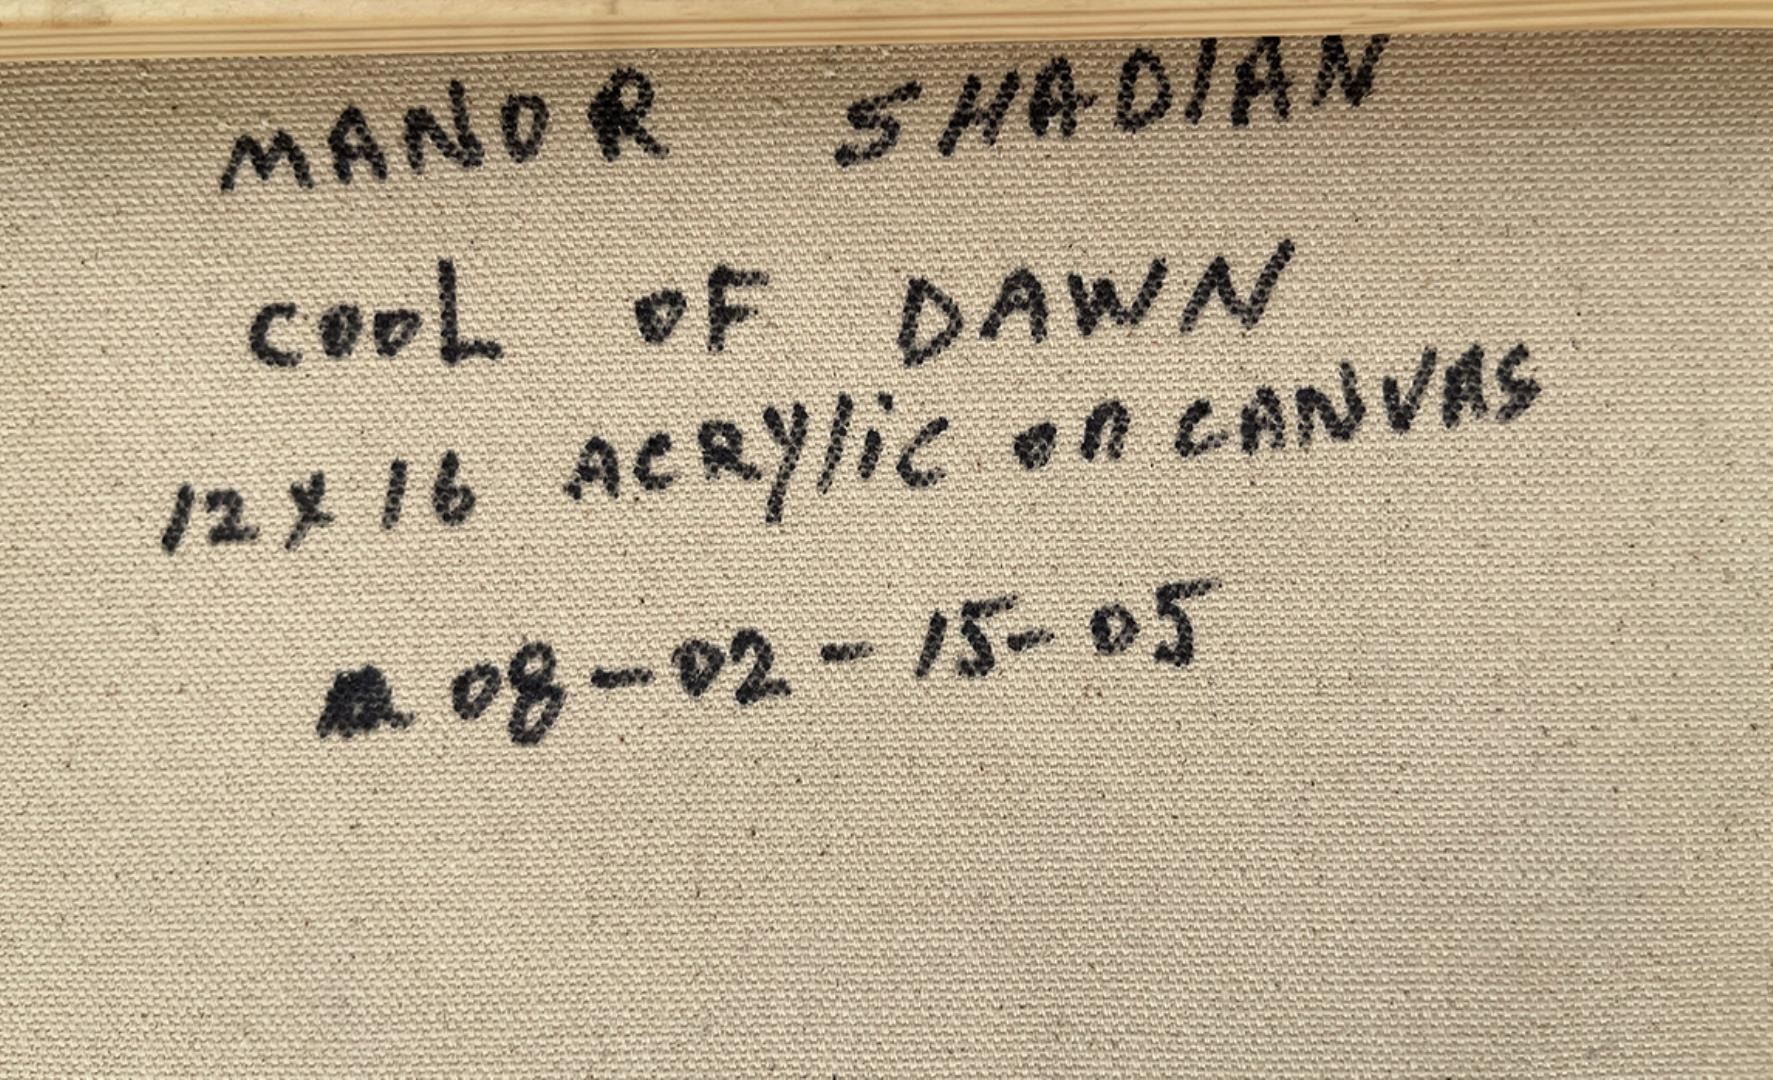 MANOR SHADIAN
COOL OF DAWN
12 x 16 ACRYlic on CANVAS
08-02-15-05